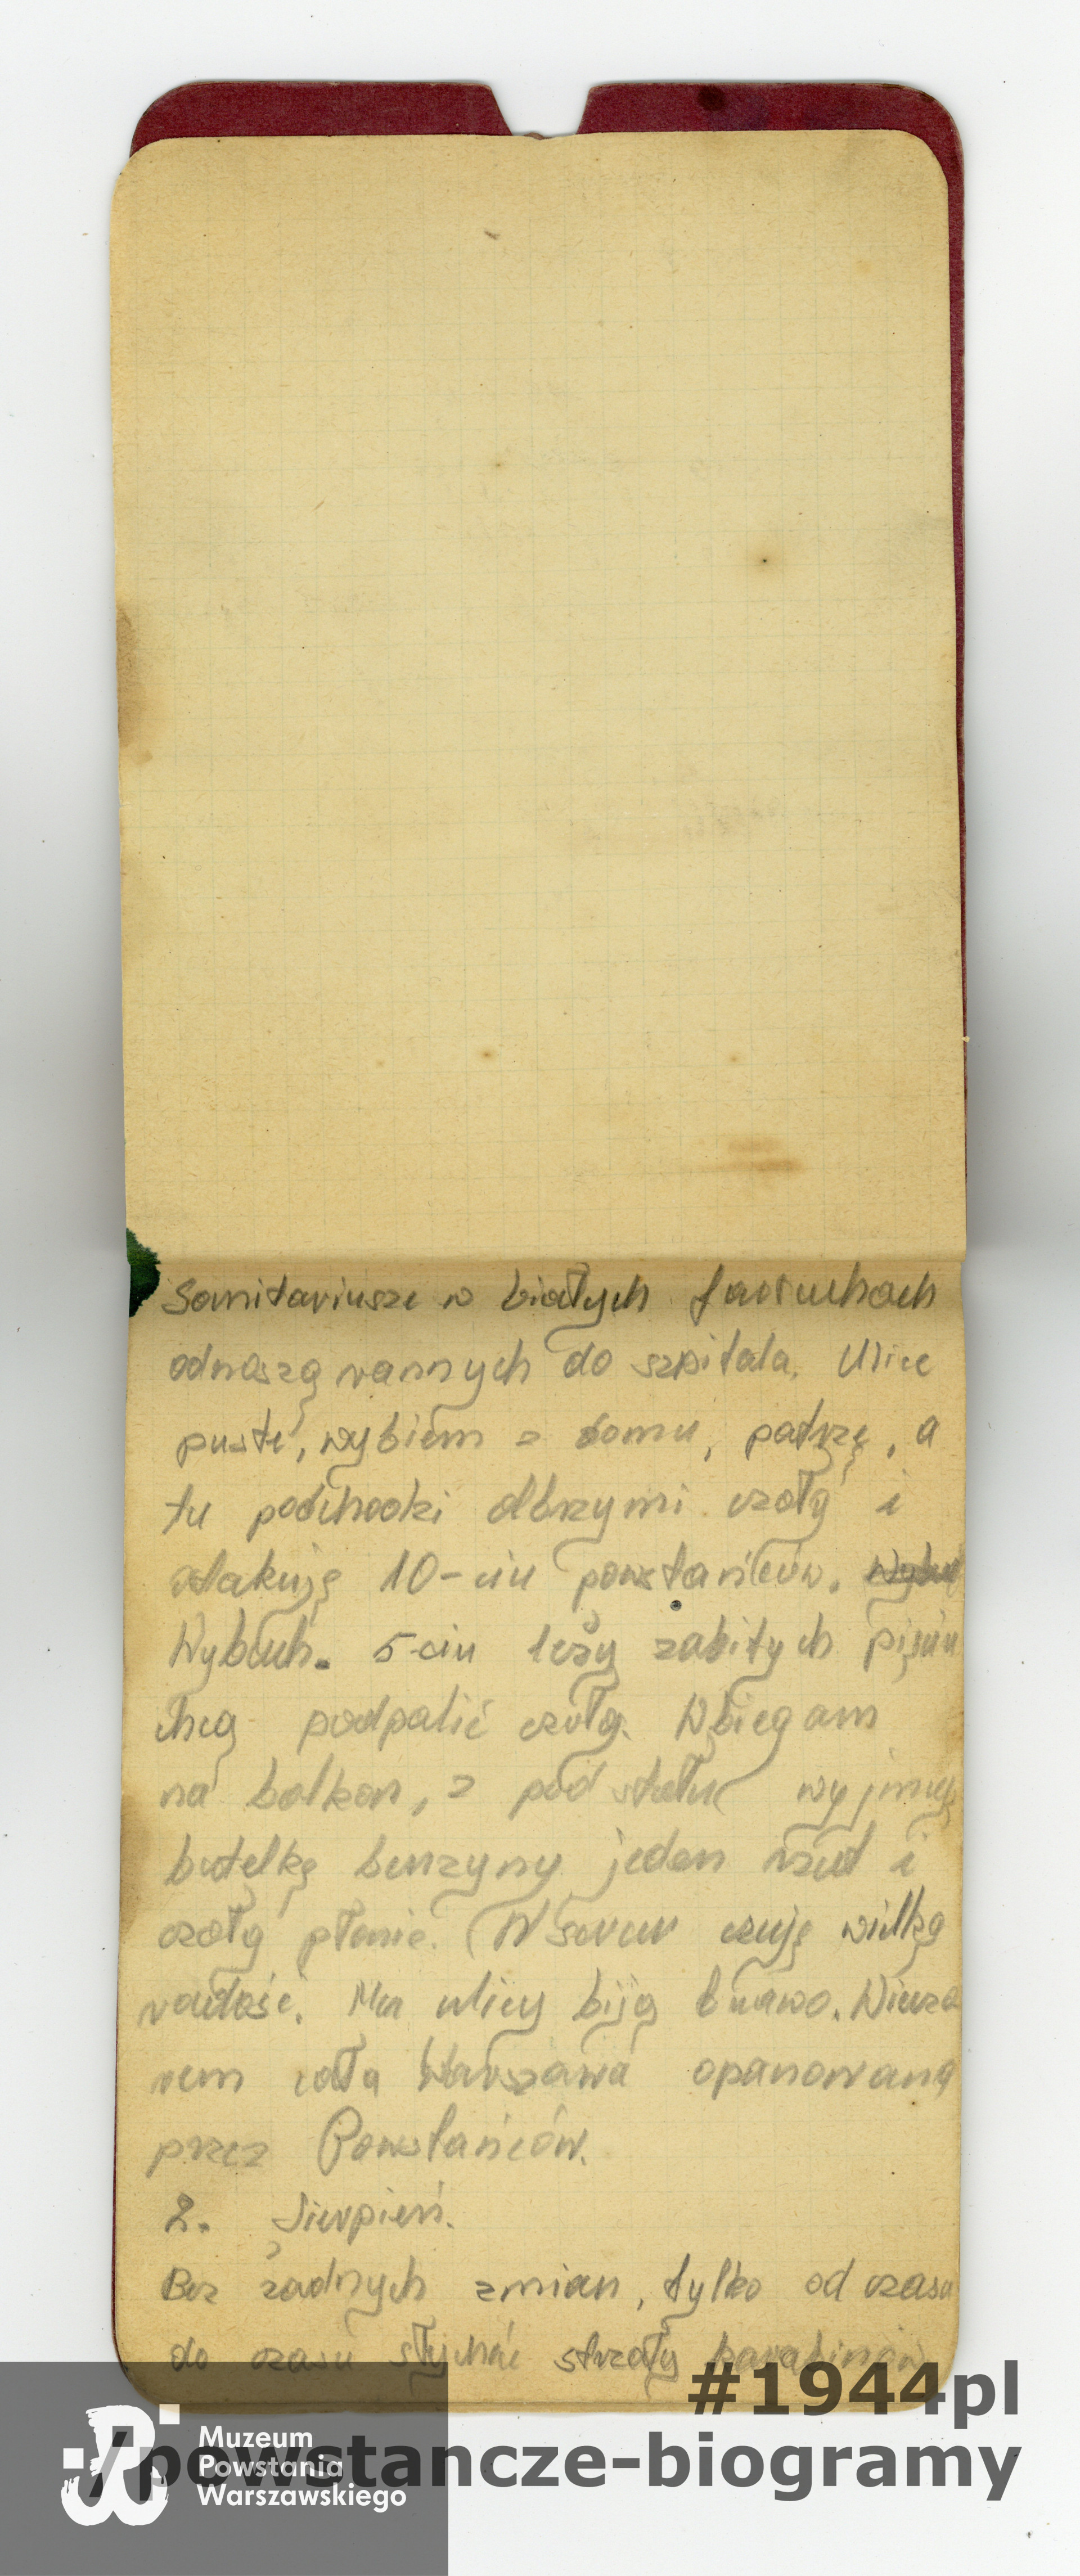 Sanitariusze w białych fartuchach
odnoszą rannych do szpitala. Ulice
puste, wybiem z domu, patrzę, a
tu podchodzi olbrzymi czołg i
atakuję 10-ciu powstańców. Wybuch
Wybuch. 5-ciu leży zabitych pięciu
chcą podpalić czołg. Wbiegam
na balkon, z pod stołu wyjmuję
butelkę benzyny jeden rzut i
czołg płonie. W sercu czuję wielką
radość. Na ulicy biją brawo. Wieczo
rem cała Warszawa opanowana
przez Powstańców.
2. Sierpień.
Bez żadnych zmian, tylko od czasu
do czasu słychać strzały karabinów
#1944pl
/powstancze-biogramy
Muzeum
Powstania
Warszawskiego